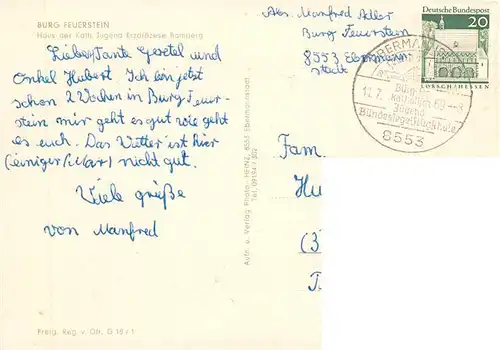 BURG FEUERSTEIN
Haus der Kath. Jugend Erzdiözese Bamberg
Liebe Tante Gretel und
Onkel Hubert. Ich bin jetzt
schon 2 Wochen in Burg Feuer-
stein mir geht es gut wie geht
es euch. Das Wetter ist hier
nicht gut.
Viele grüße
von Manfred
Freig. Reg. v. Ofr. G 18/1
Aufn. u. Verlag Photo-HEINZ, 8553 Ebermannstadt
Tel. 09194/302
Abs. Manfred Adler
Burg Feuerstein
8553 Ebermann
stadt
Deutsche Bundespost
20
LORSCH/HESSEN
EBERMANNST
Burg
Kath.
Jugend
Bundesjugendschule
8553
Fam
Hu
(3
T